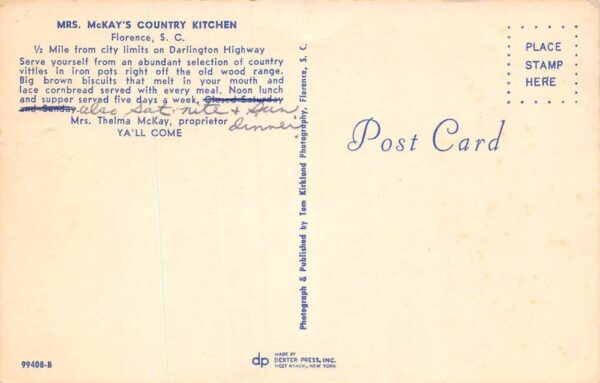 MRS. McKAY'S COUNTRY KITCHEN
Florence, S. C.
½ Mile from city limits on Darlington Highway
Serve yourself from an abundant selection of country
vittles in iron pots right off the old wood range.
Big brown biscuits that melt in your mouth and
lace cornbread served with every meal. Noon lunch
and supper served five days a week, Closed Saturday
and Sunday. also Sat. nite & Sun.
dinner
Mrs. Thelma McKay, proprietor
YA'LL COME
99408-B
Photograph & Published by Tom Kirkland Photography, Florence, S. C.
dp
MADE BY
DEXTER PRESS, INC.
WEST NYACK, NEW YORK
PLACE
STAMP
HERE
Post Card